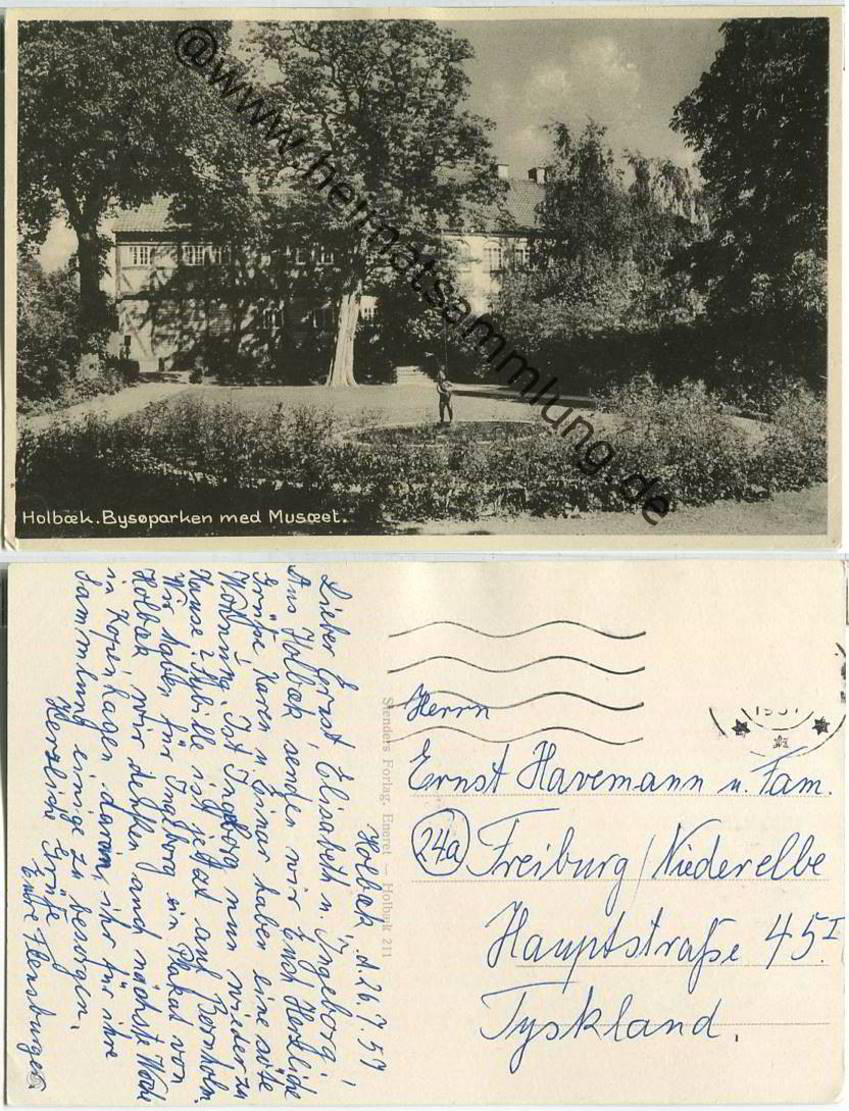 @www.heimatsammlung.de
Holbæk. Bysøparken med Musæet.
Holbæk, d. 26.7.57
Lieber Ernst, Elisabeth u. Ingeborg,
Aus Holbæk senden wir Euch Herzliche
Grüße. Karen u. Einar haben eine süße
Wohnung. Ist Ingeborg nun wieder zu
Hause? Sybille ist jetzt auf Bornholm.
Wir haben für Ingeborg ein Plakat von
Holbæk, wir denken auch nächste Woche
in Kopenhagen daran, ihr für ihre
Sammlung einige zu besorgen.
Herzliche Grüße
Eure Flensburger
Stenders Forlag, Eneret — Holbæk 211
1957
Herrn
Ernst Havemann u. Fam.
24a Freiburg/Niederelbe
Hauptstraße 45 I
Tyskland.